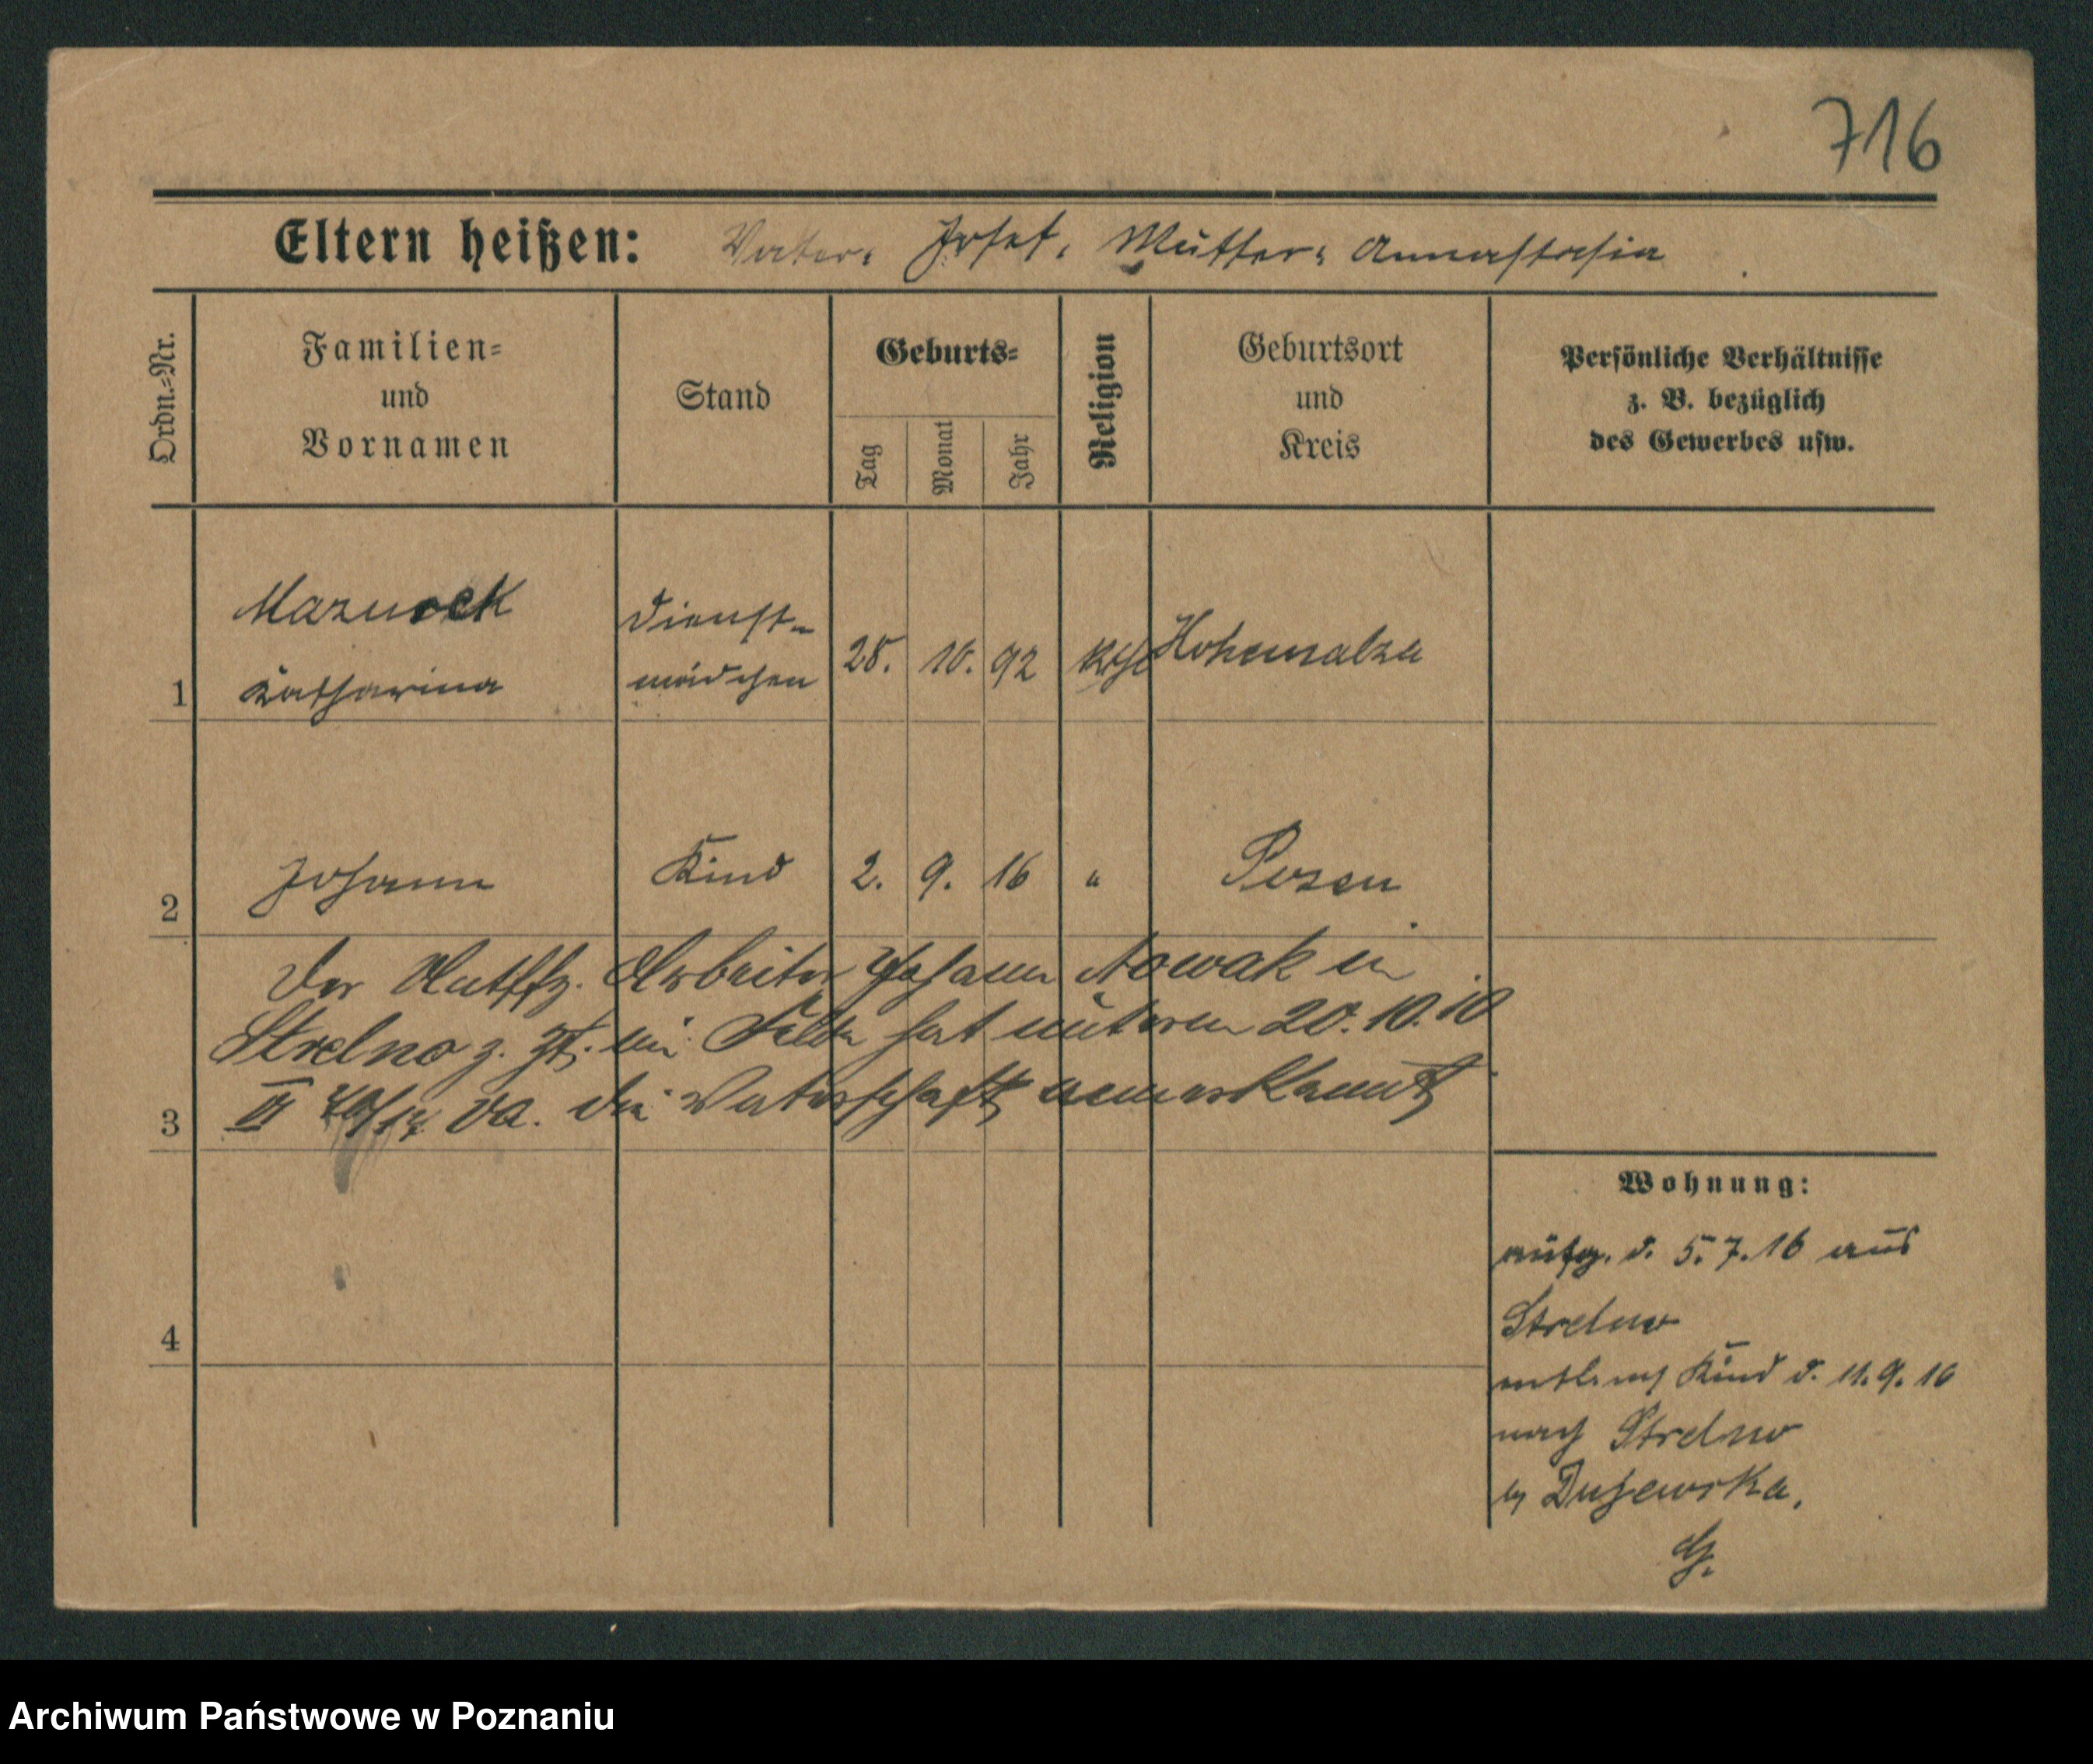 716
Eltern heißen: Vater: Josef, Mutter: Annastasia
Ordn.=Nr.
Familien=
und
Vornamen
Stand
Geburts=
Tag
Monat
Jahr
Religion
Geburtsort
und
Kreis
Persönliche Verhältnisse
z. B. bezüglich
des Gewerbes usw.
1
Mazurek
Katharina
Dienst-
mädchen
25. 10. 92
kth
Hohensalza
2
Johann
Kind
2. 9. 16
"
Posen
Der Arbeiter Johann Nowak in
Strelno z. Zt. im Felde hat unterm 20. 10.
3
II VA. die Vaterschaft anerkannt
Wohnung:
aufg. d. 5. 7. 16 aus
Strelno
4
Kind d. 11. 9. 16
nach Strelno
G.
Archiwum Państwowe w Poznaniu